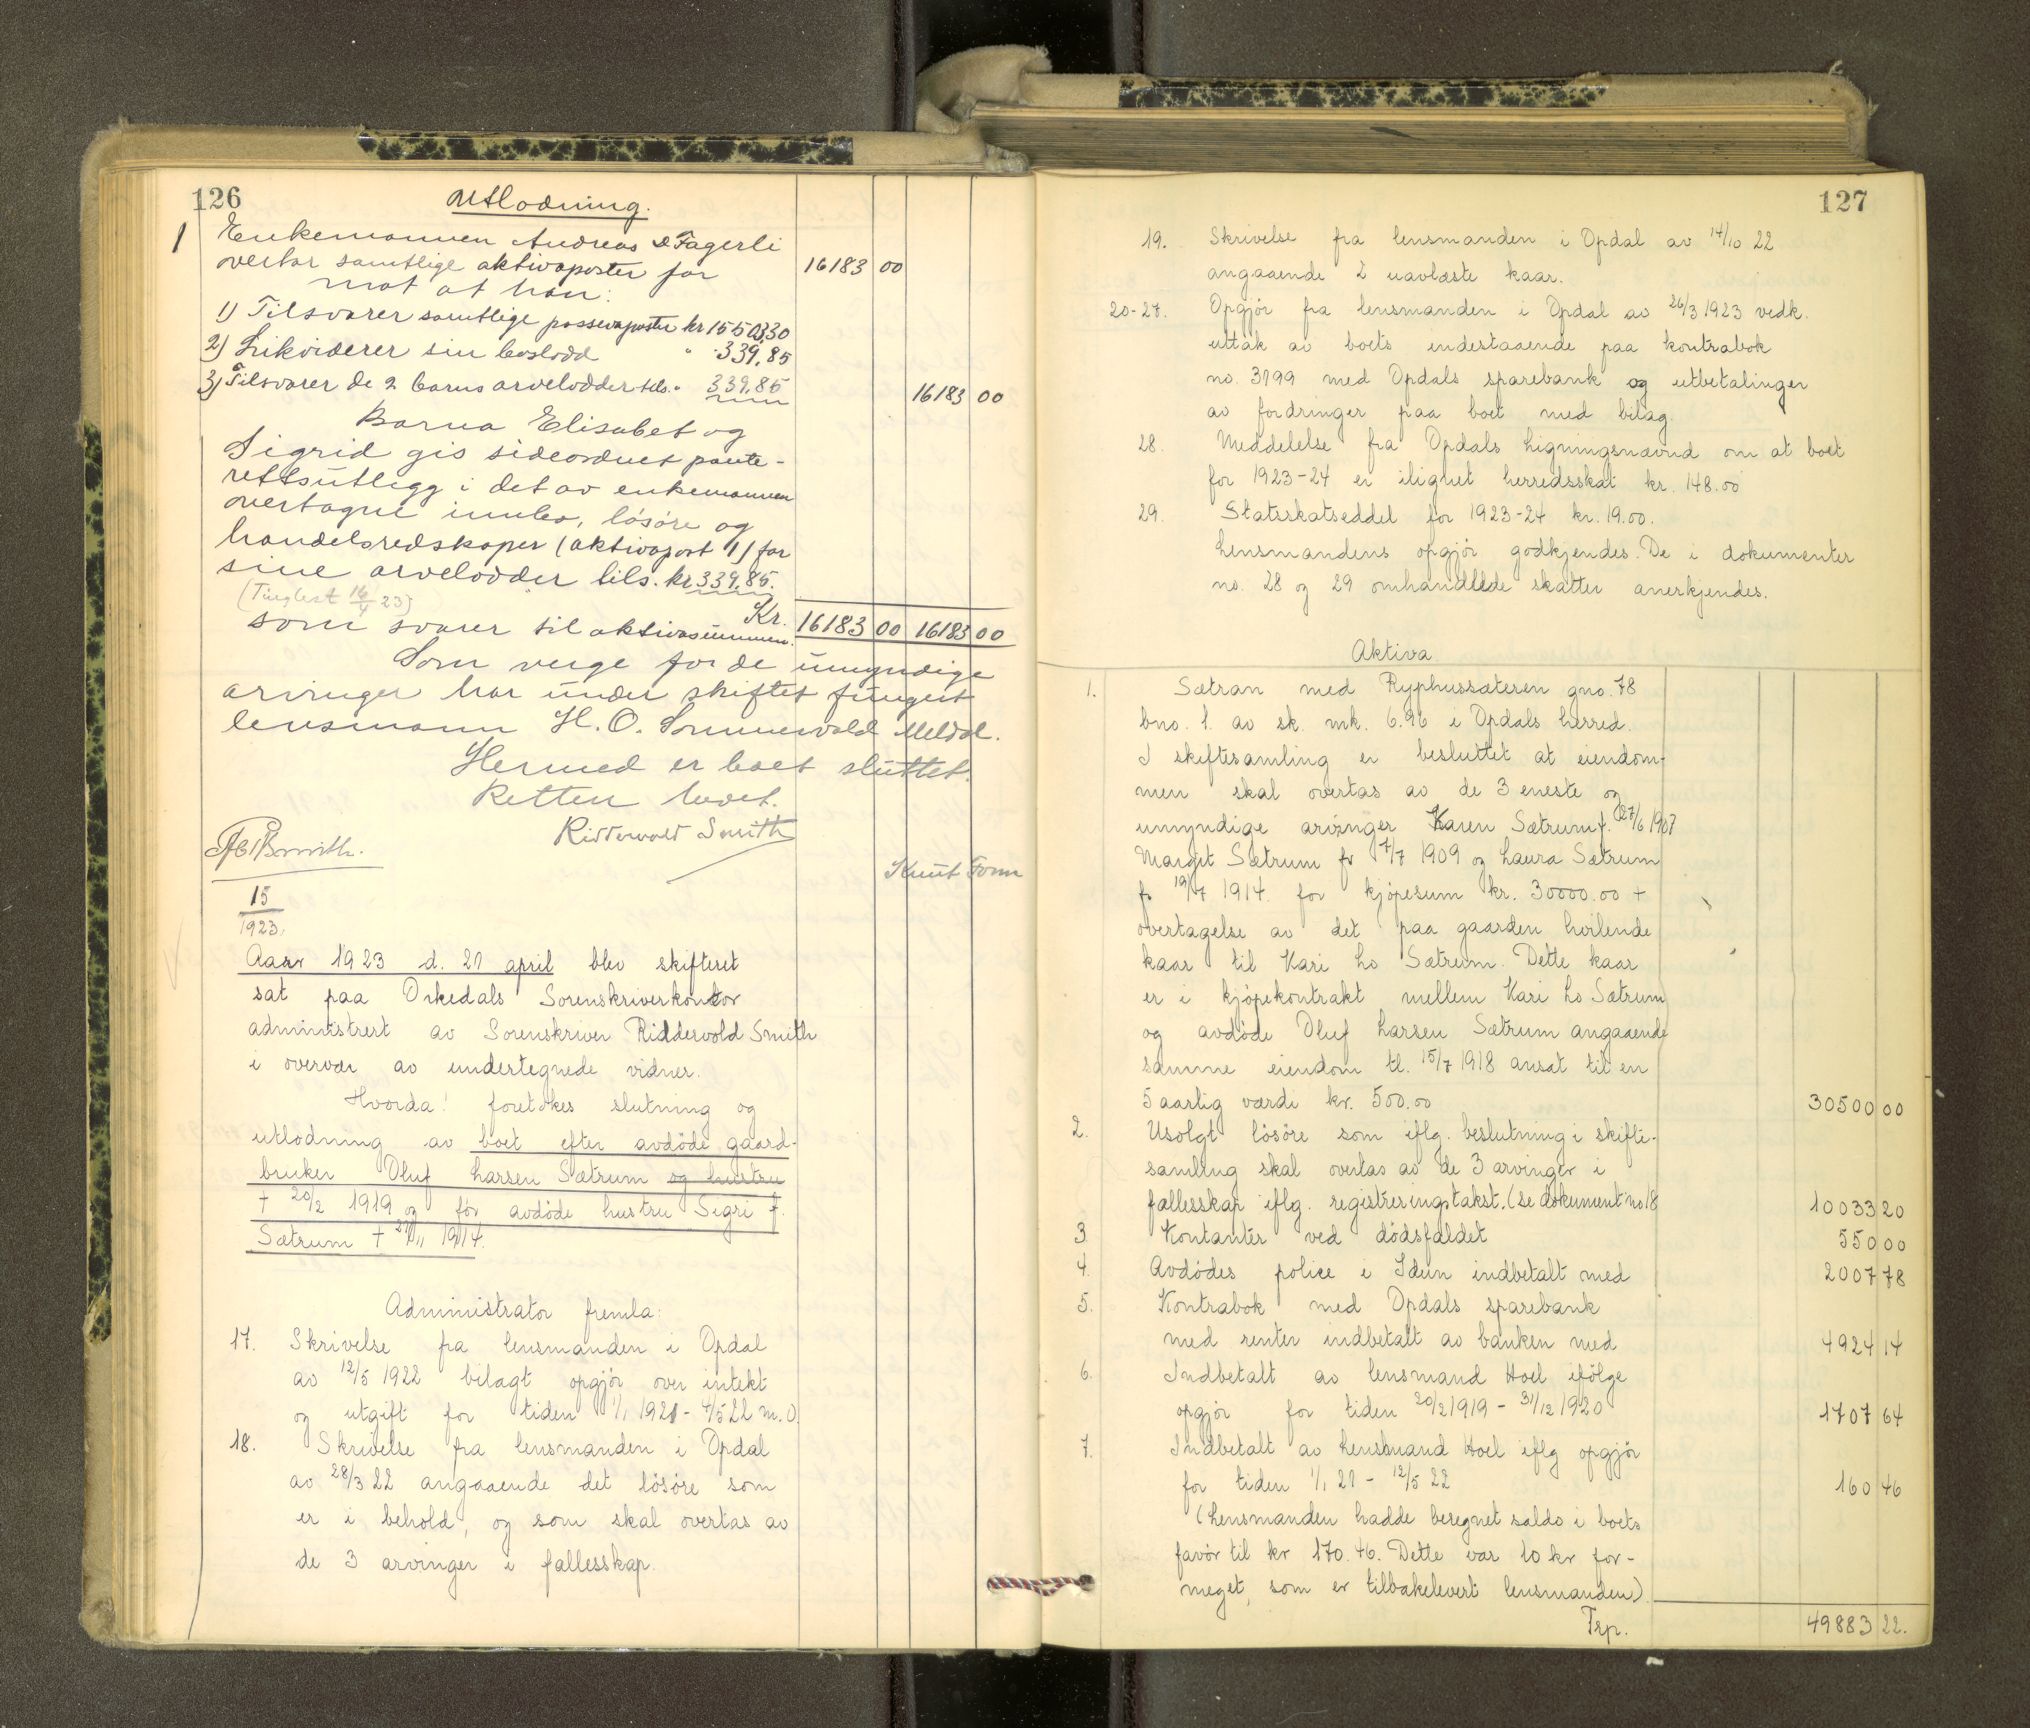 126
Utlodning.
1 Enkemannen Andreas O Fagerli
overtar samtlige aktivaposter for 16183 00
mot at han:
1) Tilsvarer samtlige passivaposter kr 15503,30
2) Likviderer sin boslodd " 339,85
3) Tilsvarer de 2 barns arvelodder tils. " 339,85 16183 00
Barna Elisabet og
Sigrid gis sideordnet pante-
rettsutlegg i det av enkemannen
overtagne innbo, løsøre og
handelsredskaper (aktivapost 1) for
sine arvelodder tils. kr 339,85.
(Tinglest 16/4 23)
som svarer til aktivasummen. Kr. 16183 00 16183 00
Som verge for de umyndige
arvinger har under skiftet fungert
lensmann H. O. Sommervold Meldal.
Hermed er boet sluttet.
Retten hevet.
Ridderwold Smith
Knut Tonn
15/1923.
Aar 1923 d. 21 april blev skifteret
sat paa Orkedals Sorenskriverkontor
administrert av Sorenskriver Riddervold Smith
i overvær av undertegnede vidner.
Hvorda! foretokes slutning og
utlodning av boet efter avdøde gaard-
bruker Oluf Larsen Sætrum og hustru
† 20/2 1919 og før avdøde hustru Sigri f.
Sætrum † 27/11 1914.
Administrator fremla:
17. Skrivelse fra lensmanden i Opdal
av 12/5 1922 bilagt opgjør over intekt
og utgift for tiden 1/1 1921 - 4/5 22 m. O.
18. Skrivelse fra lensmanden i Opdal
av 28/3 22 angaaende det løsøre som
er i behold, og som skal overtas av
de 3 arvinger i fællesskap.
127
19. Skrivelse fra lensmanden i Opdal av 14/10 22
angaaende 2 uavløste kaar.
20-27. Opgjør fra lensmanden i Opdal av 26/3 1923 vedk.
uttak av boets indestaaende paa kontrabok
no. 3199 med Opdals sparebank og utbetalinger
av fordringer paa boet med bilag.
28. Meddelelse fra Opdals Ligningsnævnd om at boet
for 1923-24 er ilignet herredsskat kr. 148.00
29. Statsskatseddel for 1923-24 kr. 19.00.
Lensmandens opgjør godkjendes. De i dokumenter
no. 28 og 29 omhandlede skatter anerkjendes.
Aktiva
1. Sætran med Ryphussæteren gno. 78
bno. 1. av sk. mk. 6.96 i Opdals herred.
I skiftesamling er besluttet at eiendom-
men skal overtas av de 3 eneste og
umyndige arvinger Karen Sætrum f. 27/6 1907
Margit Sætrum f. 4/7 1909 og Laura Sætrum
f. 19/7 1914. for kjøpesum kr. 30000.00 +
overtagelse av det paa gaarden hvilende
kaar til Kari Lo Sætrum. Dette kaar
er i kjøpekontrakt mellem Kari Lo Sætrum
og avdøde Oluf Larsen Sætrum angaaende
samme eiendom tl. 15/7 1918 ansat til en
5 aarlig værdi kr. 500.00 30500 00
2. Usolgt løsøre som iflg. beslutning i skifte-
samling skal overtas av de 3 arvinger i
fællesskap iflg. registreringstakst. (se dokument no 18 10033 20
3. Kontanter ved dødsfaldet 550 00
4. Avdødes police i Idun indbetalt med 2007 78
5. Kontrabok med Opdals sparebank
med renter indbetalt av banken med 4924 14
6. Indbetalt av lensmand Hoel ifølge
opgjør for tiden 20/2 1919 - 31/12 1920 1707 64
7. Indbetalt av Lensmand Hoel iflg opgjør
for tiden 1/1 21 - 12/5 22 160 46
(Lensmanden hadde beregnet saldo i boets
favør til kr 170.46. Dette var 10 kr for-
meget, som er tilbakelevert lensmanden).
Trp. 49883 22.